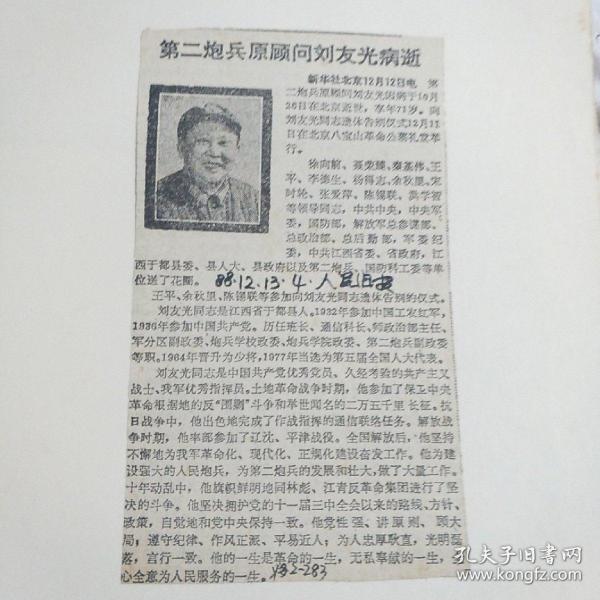 第二炮兵原顾问刘友光病逝
新华社北京12月12日电 第
二炮兵原顾问刘友光因病于10月
26日在北京逝世，享年71岁。向
刘友光同志遗体告别仪式12月11
日在北京八宝山革命公墓礼堂举
行。
徐向前、聂荣臻、秦基伟、王
平、李德生、杨得志、余秋里、宋
时轮、张爱萍、陈锡联、洪学智
等领导同志，中共中央，中央军
委，国防部，解放军总参谋部、
总政治部、总后勤部，军委纪
委，中共江西省委、省政府，江
西于都县委、县人大、县政府以及第二炮兵、国防科工委等单
位送了花圈。
88.12.13.4.人民日报
王平、余秋里、陈锡联等参加向刘友光同志遗体告别的仪式。
刘友光同志是江西省于都县人。1932年参加中国工农红军，
1936年参加中国共产党。历任班长、通信科长、师政治部主任、
军分区副政委、炮兵学校政委、炮兵学院政委、第二炮兵副政委
等职。1964年晋升为少将，1977年当选为第五届全国人大代表。
刘友光同志是中国共产党优秀党员、久经考验的共产主义
战士、我军优秀指挥员。土地革命战争时期，他参加了保卫中央
革命根据地的反“围剿”斗争和举世闻名的二万五千里长征。抗
日战争中，他出色地完成了作战指挥的通信联络任务。解放战
争时期，他率部参加了辽沈、平津战役。全国解放后，他坚持
不懈地为我军革命化、现代化、正规化建设奋发工作。他为建
设强大的人民炮兵，为第二炮兵的发展和壮大，做了大量工作。
十年动乱中，他旗帜鲜明地同林彪、江青反革命集团进行了坚
决的斗争。他坚决拥护党的十一届三中全会以来的路线、方针、
政策，自觉地和党中央保持一致。他党性强、讲原则、顾大
局；遵守纪律、作风正派、平易近人；为人忠厚耿直，光明磊
落，言行一致。他的一生是革命的一生，无私奉献的一生，
心全意为人民服务的一生。
孔夫子旧书网
www.kongfz.com